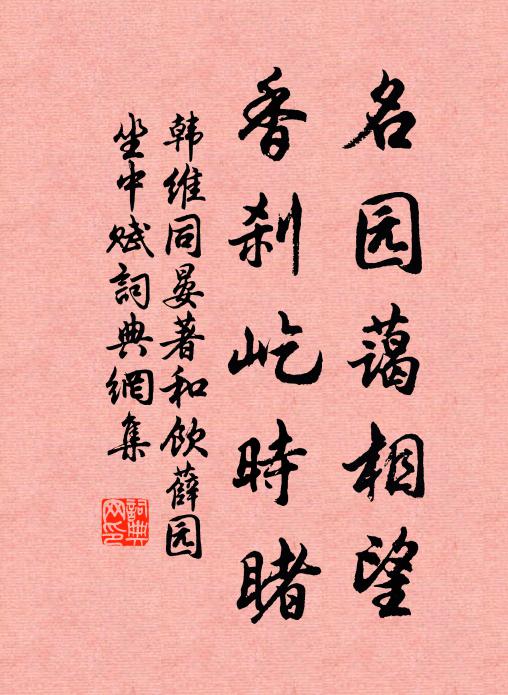 名园蔼相望
香刹屹時睹
韩维同晏著和饮薛园
坐中赋詞典網集
詞典
网印